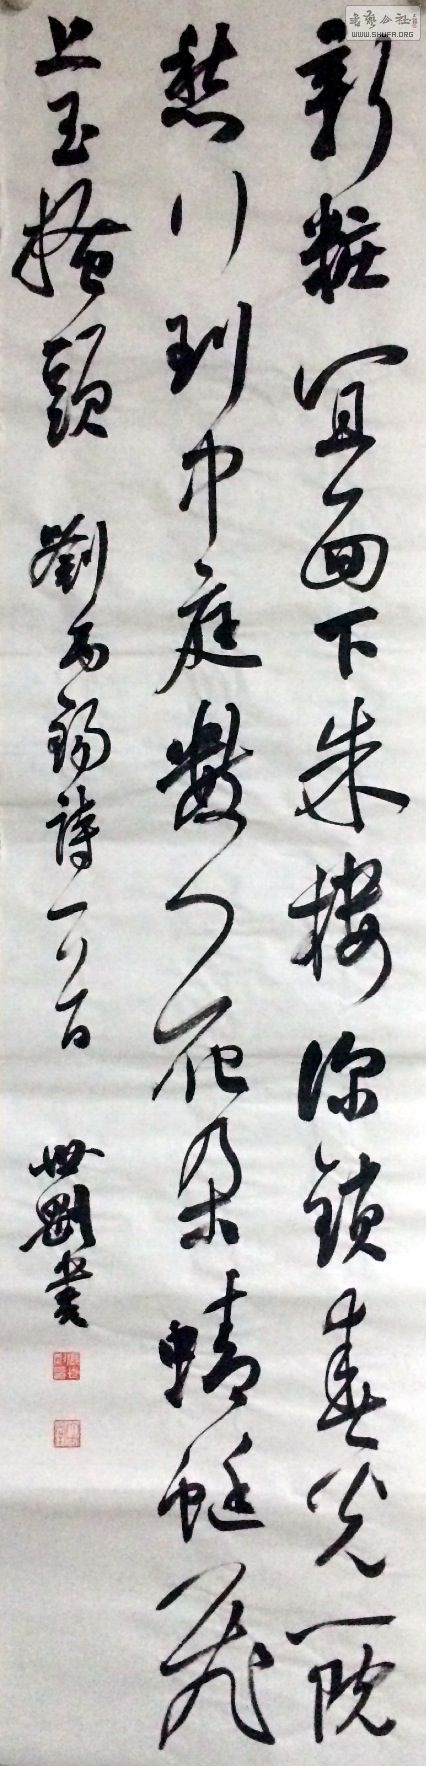 新粧宜面下朱樓深鎖春光一院
愁行到中庭數個花朵蜻蜓飛
上玉搔頭 劉禹錫詩一首 世剛書
書藝公社
WWW.SHUFA.ORG